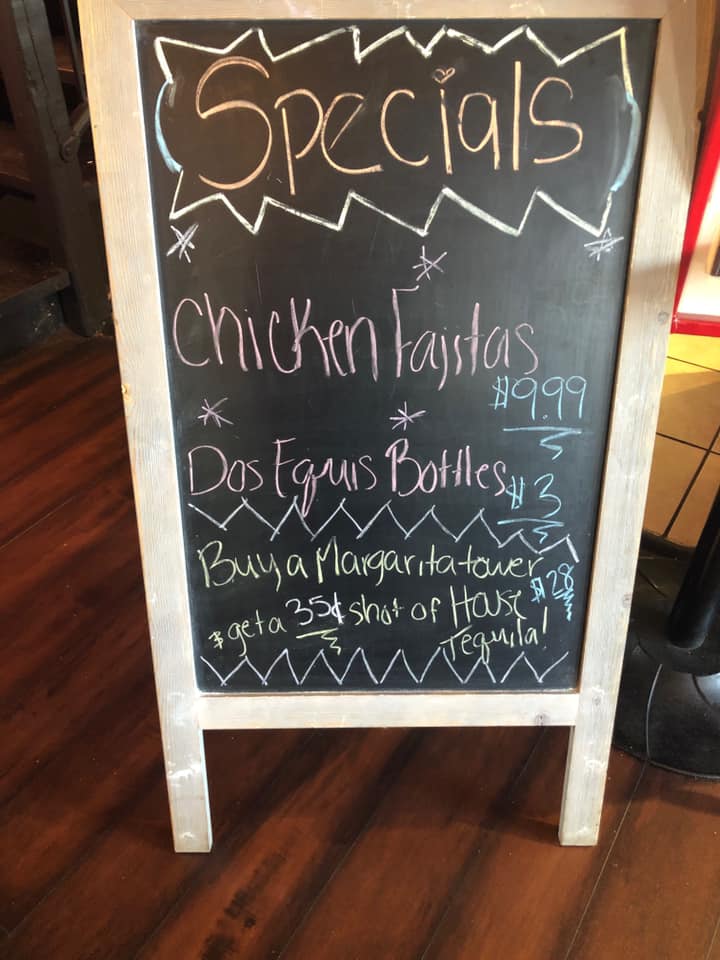 Specials
Chicken Fajitas
$9.99
Dos Equis Bottles $3
Buy a Margarita tower $28
& get a 35¢ shot of House
Tequila!